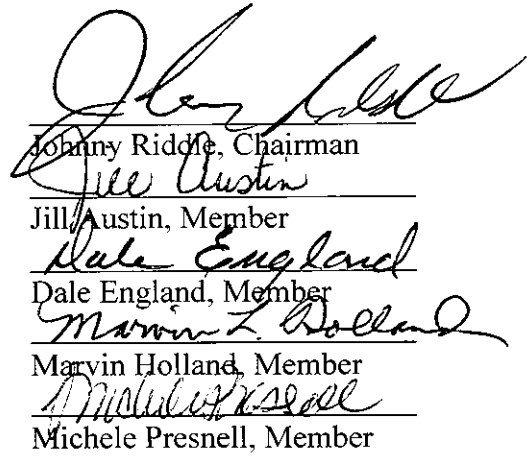 Johnny Riddle
Johnny Riddle, Chairman
Jill Austin
Jill Austin, Member
Dale England
Dale England, Member
Marvin L. Holland
Marvin Holland, Member
Michele Presnell
Michele Presnell, Member